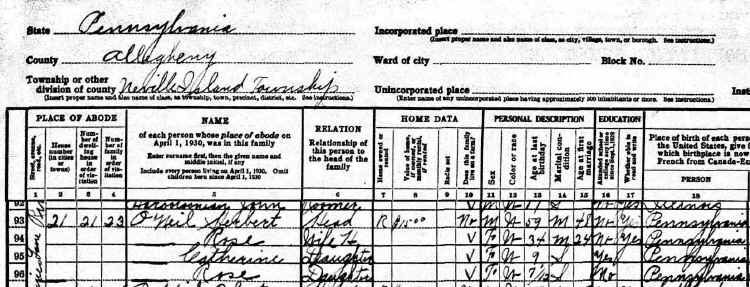 State Pennsylvania Incorporated place
(Insert proper name and also name of class, as city, village, town, or borough. See instructions.)
County Allegheny Ward of city Block No.
Township or other
division of county Neville Island Township Unincorporated place
(Insert proper name and also name of class, as township, town, precinct, district, etc. See instructions.) (Enter name of any unincorporated place having approximately 500 inhabitants or more. See instructions.)
PLACE OF ABODE NAME RELATION HOME DATA PERSONAL DESCRIPTION EDUCATION Place of birth of each pers
of each person whose place of abode on
April 1, 1930, was in this family
Enter surname first, then the given name and
middle initial, if any
Include every person living on April 1, 1930. Omit
children born since April 1, 1930
Relationship of
this person to
the head of the
family
House
number
(in cities
or
towns)
Num-
ber of
dwell-
ing
house in
order of
vis-
itation
Num-
ber of
family
in
order of
vis-
itation
Home owned or
rented
Radio set
Does this family
live on a farm?
Sex
Color or race
Age at last
birthday
Marital con-
dition
Age at first
marriage
Whether able to
read and write
the United States, give
which birthplace is now
French from Canada-En
PERSON
1 2 3 4 5 6 7 8 9 10 11 12 13 14 15 16 17 18
92 John Roomer V M W S No Yes Illinois
93 21 21 23 O'Neil Herbert Head R No M W 59 M 48 No Yes Pennsylvania
94 Rose Wife H V F W 34 M 24 No Yes Pennsylvania
95 Catherine Daughter V F W 9 S Yes Pennsylvania
96 Rose Daughter V F W 7/12 S No Pennsylvania